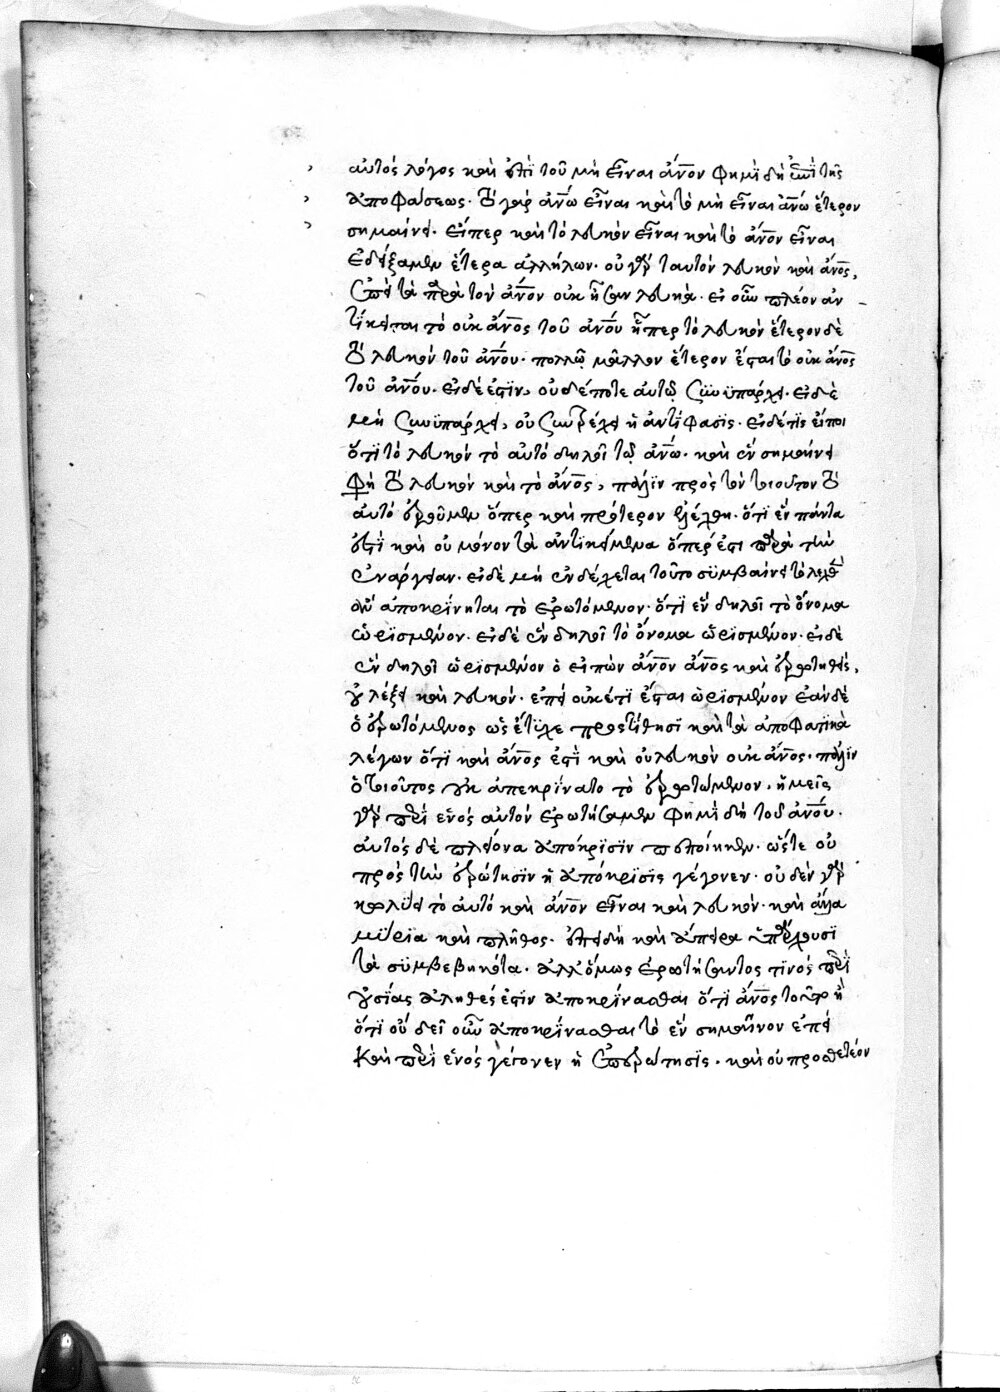 αὐτός λόγος καὶ ἐπὶ τοῦ μὴ εἶναι ἄνον φημὶ δὴ ἐπὶ τῆς
ἀποφάσεως. τό γάρ ἀνω εἶναι καὶ τὸ μὴ εἶναι ἀνω ἕτερον
σημαίνει. εἴπερ καὶ τὸ λευκόν εἶναι καὶ τὸ ἄνον εἶναι
ἐδείξαμεν ἕτερα ἀλλήλων. οὐ γὰρ ταυτόν λευκόν καὶ ἄνος,
ἐπεὶ τὰ παρὰ τὸν ἄνον οὐκ ἦσαν λευκὰ. εἰ οὖν πλέον ἀν
τίκειται τὸ οὐκ ἄνος τοῦ ἀνου ἤπερ τὸ λευκόν ἕτερον δὲ
τό λευκόν τοῦ ἀνου. πολλῷ μᾶλλον ἕτερον ἔσται τὸ οὐκ ἄνος
τοῦ ἀνου. εἰ δέ ἐστϊν, οὐδέποτε αυτῷ συνϋπάρχει. εἰ δὲ
μὴ συνϋπάρχει, οὐ συντρέχει ἡ ἀντίφασϊς. εἰ δέ τϊς εἴποι
ὅτϊ τὸ λευκόν τὸ αὐτό δηλοῖ τῷ ἀνω. καὶ ἓν σημαίνει
φη τό λευκόν καὶ τὸ ἄνος, πάλϊν πρὸς τὸν τοιοῦτον τό
αυτό ἐροῦμεν ὅπερ καὶ πρότερον ἐλέχθη. ὅτϊ ἓν πάντα
ἐστὶ καὶ οὐ μόνον τὰ ἀντϊκείμενα ὅπερ ἐστι παρὰ τὴν
ἐνάργειαν. εἰ δὲ μὴ ἐνδέχεται τοῦτο συμβαίνει τὸ λεχθὲν
ἂν ἀποκρίνηται τὸ ἐρωτόμενον. ὅτϊ ἓν δηλοῖ τὸ ὄνομα
ὡρϊσμένον. εἰ δὲ ἓν δηλοῖ τὸ ὄνομα ὡρϊσμένον. εἰ δὲ
ἓν δηλοῖ ὡρϊσμένον ὁ εἰπὼν ἄνον ἄνος καὶ ἐρωτηθείς,
οὐ λέξει καὶ λευκόν. ἐπεὶ οὐκέτϊ ἔσται ὡρϊσμένον ἐὰν δὲ
ὁ ἐρωτόμενος ὡς ἔτϋχε προστίθησϊ καὶ τὰ ἀποφατϊκὰ
λέγων ὅτϊ καὶ ἄνος ἐστὶ καὶ οὐ λευκὸν οὐκ ἄνος. πάλϊν
ὁ τοιοῦτος οὐκ ἀπεκρίνατο τὸ ἐρωτώμενον. ἡμεῖς
γὰρ περὶ ἑνός αὐτόν ἐρωτήσαμεν φημὶ δὴ τοῦ ἀνου.
αυτός δὲ πλείονα ἀπόκρϊσϊν πεποίηκεν. ὥστε οὐ
πρός τὴν ἐρώτησϊν ἡ ἀπόκρϊσϊς γέγονεν. οὐδὲν γὰρ
κωλύει τὸ αυτό καὶ ἄνον εἶναι καὶ λευκόν. καὶ ἄλλα
μϋρία καὶ πλῆθος. ἐπειδὴ καὶ ἄπειρα ὑπάρχουσϊ
τὰ συμβεβηκότα. ἀλλ' ὅμως ἐρωτήσαντος τϊνός περὶ
οὐσίας ἀληθές ἐστϊν ἀποκρίνασθαι ὅτϊ ἄνος τοῦτο ἢ
ὅτϊ οὔ δεῖ οὖν ἀποκρίνασθαι τὸ ἓν σημαῖνον ἐπεὶ
καὶ περὶ ἑνός γέγονεν ἡ ἐπερώτησϊς. καὶ οὐ προσθετέον